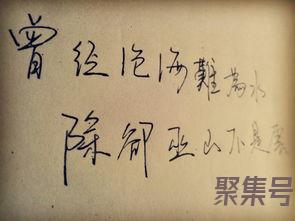 曾经沧海難為水
除却巫山不是雲
聚集号